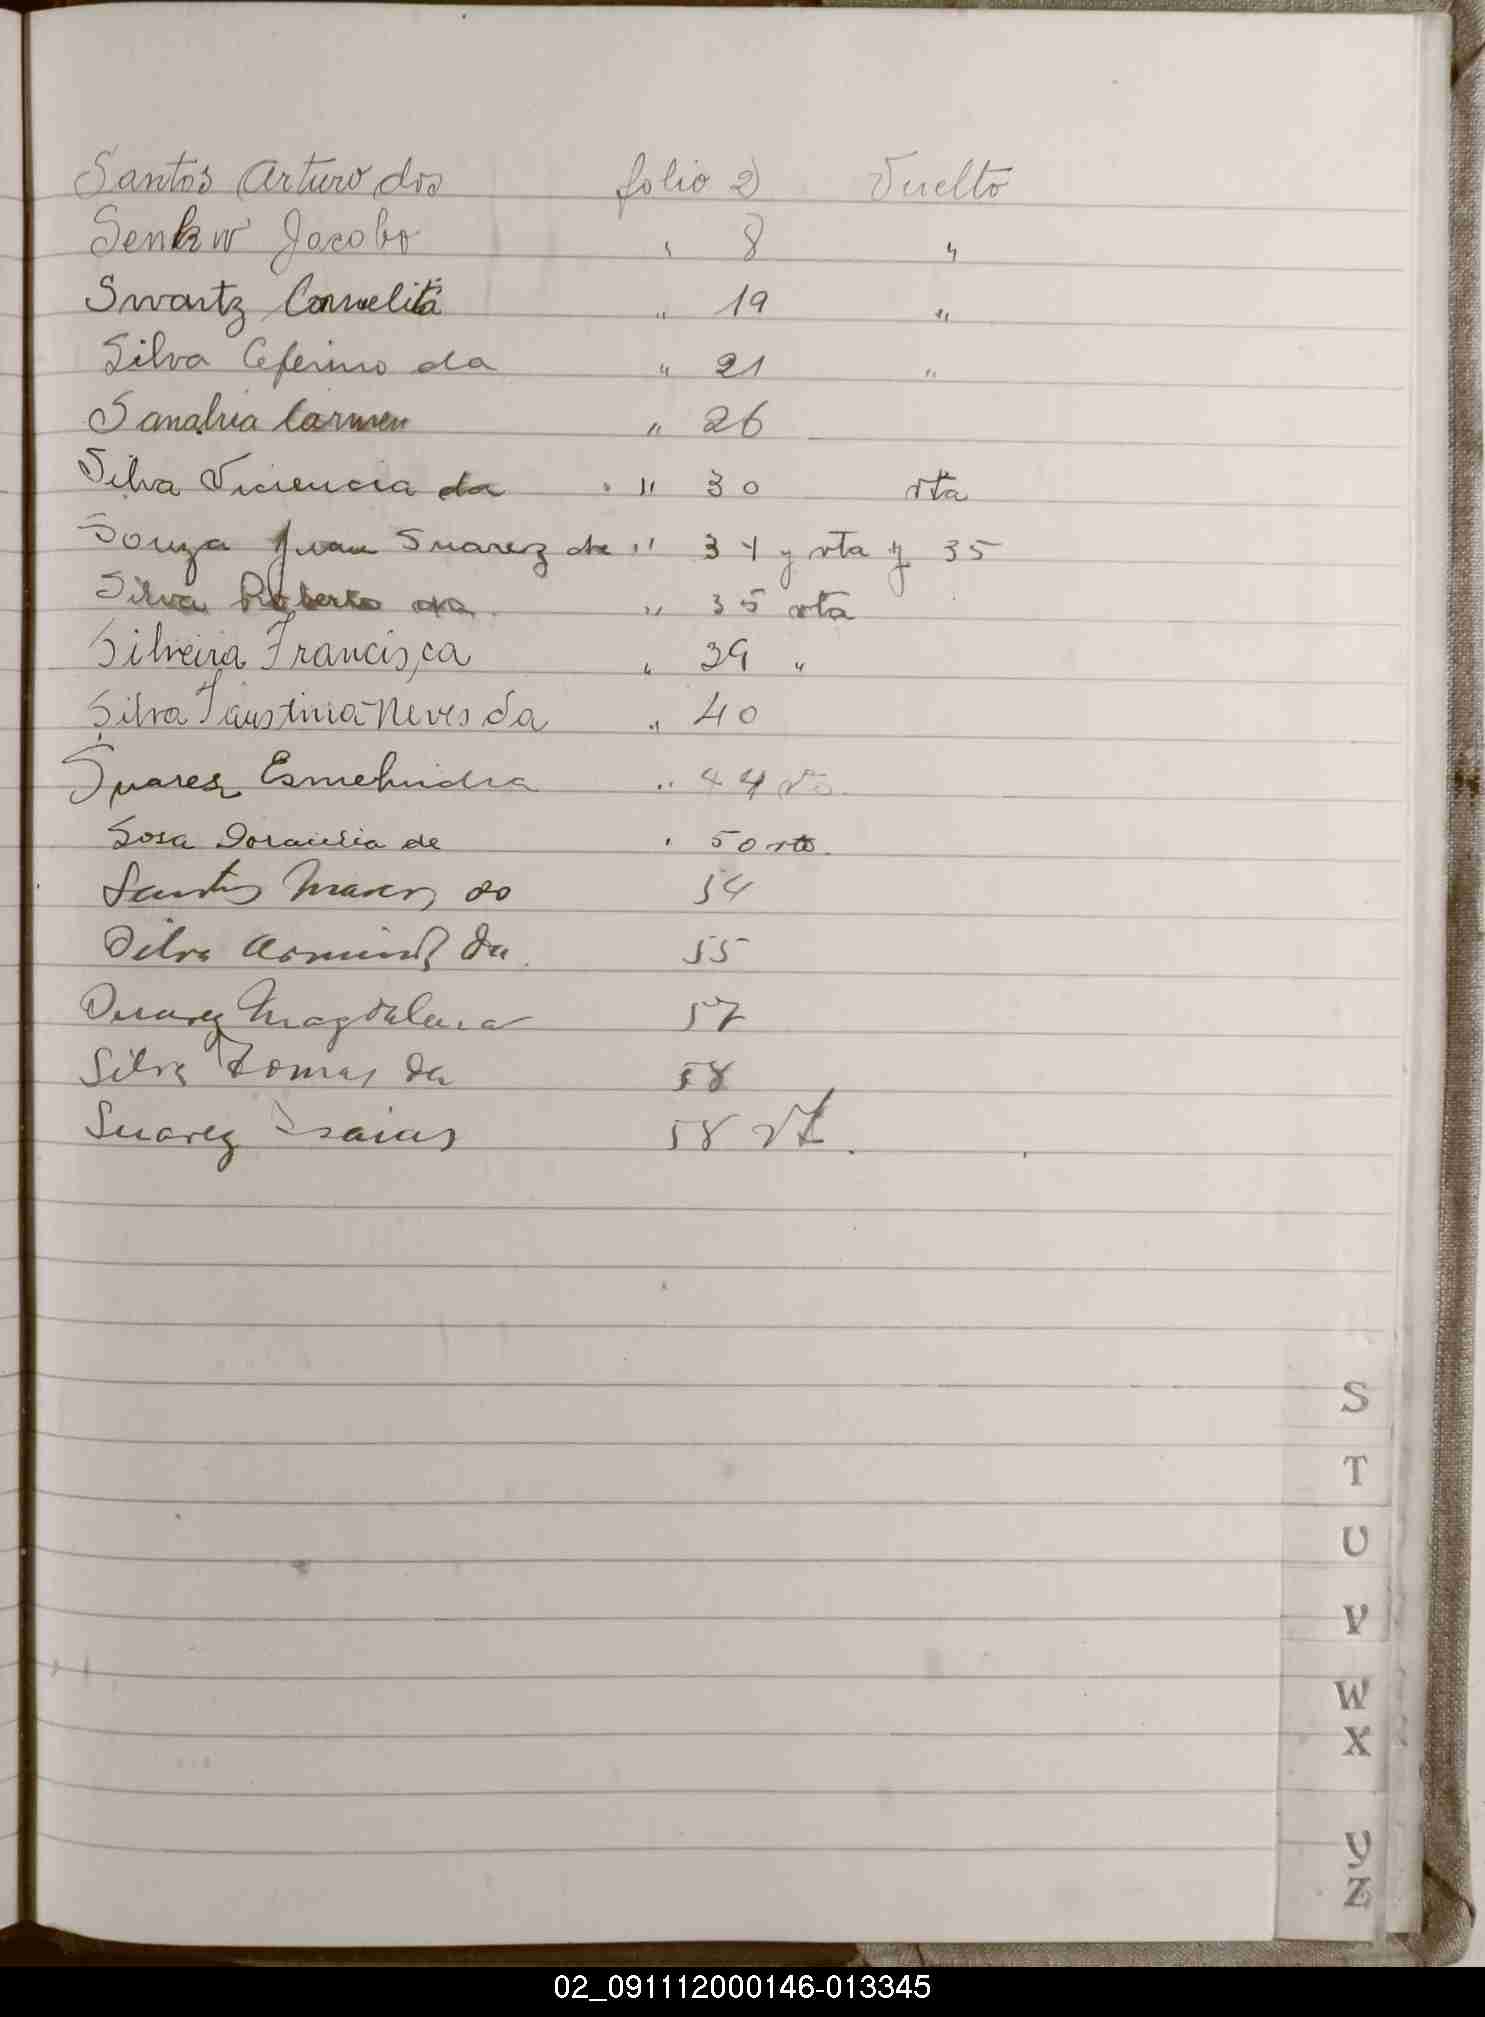 Santos Arturo dos folio 2 Vuelto
Senkiv Jacobo " 8 "
Swartz Carmelita " 19 "
Silva Ceferino da " 21 "
Sanabria Carmen " 26
Silva Vicencia da " 30 vta
Souza Juan Suarez de " 34 y vta y 35
Silva Roberto da " 35 vta
Silveira Francisca " 39 "
Silva Faustina Neves da " 40
Suarez Esmelindra " 44 vto
Sosa de " 50 vto
Santos do 54
Silva da 55
Suarez Magdalena 57
Silva Tomas da 58
Suarez Isaias 58 vt
S
T
U
V
W
X
Y
Z
02_091112000146-013345